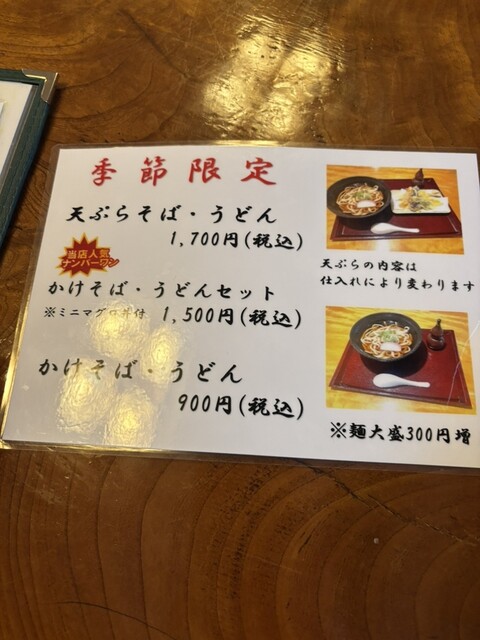 季節限定
天ぷらそば・うどん
1,700円(税込)
天ぷらの内容は
仕入れにより変わります
当店人気
ナンバーワン
かけそば・うどんセット
※ミニマグロ丼付 1,500円(税込)
かけそば・うどん
900円(税込)
※麺大盛300円増